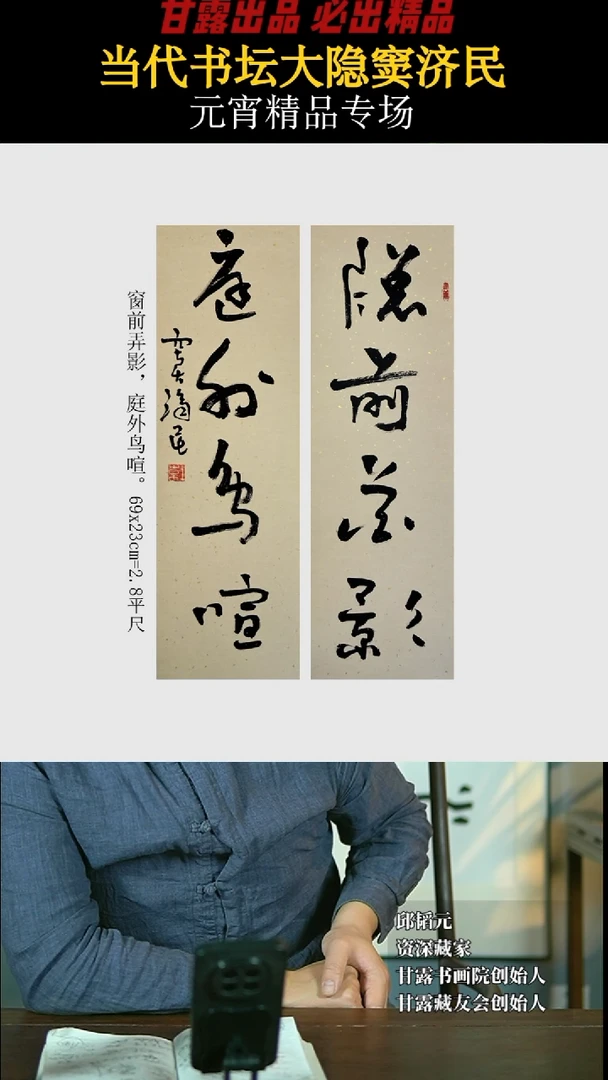 甘露出品 必出精品
当代书坛大隐窦济民
元宵精品专场
前
影
庭
外
鸟
喧
窗前弄影，庭外鸟喧。69x23cm=2.8平尺
邱韬元
资深藏家
甘露书画院创始人
甘露藏友会创始人